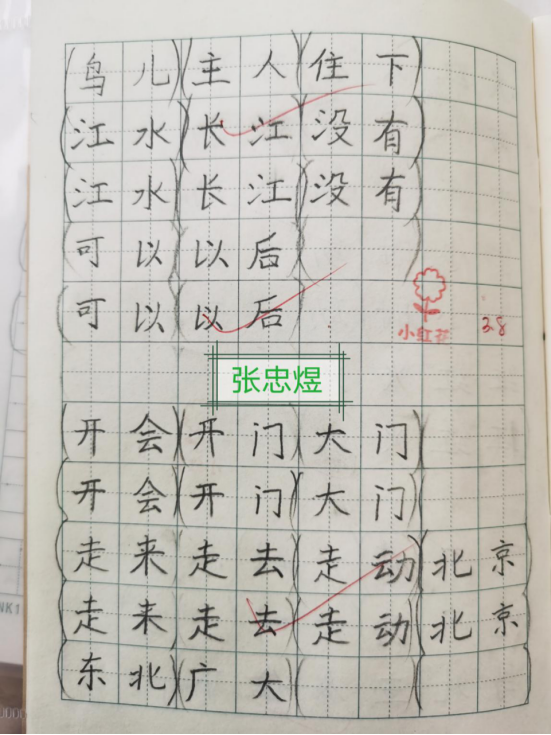 (鸟儿)(主人)(住下)
(江水)(长江)(没有)
(江水)(长江)(没有)
(可以)(以后)( )
(可以)(以后)
小红花 3.8
张忠煜
(开会)(开门)(大门)
(开会)(开门)(大门)
(走来)(走去)(走动)(北京)
(走来)(走去)(走动)(北京)
(东北)(广大)( )